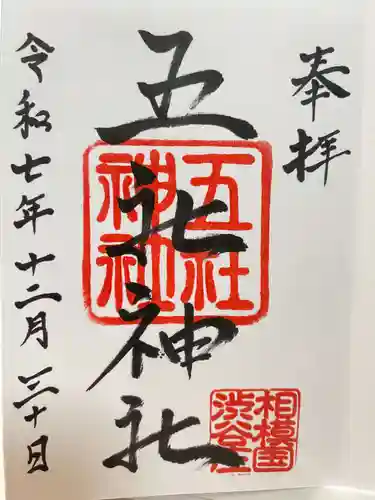 奉拝
五社神社
五社
神社
相模国
渋谷庄
令和七年十二月三十日